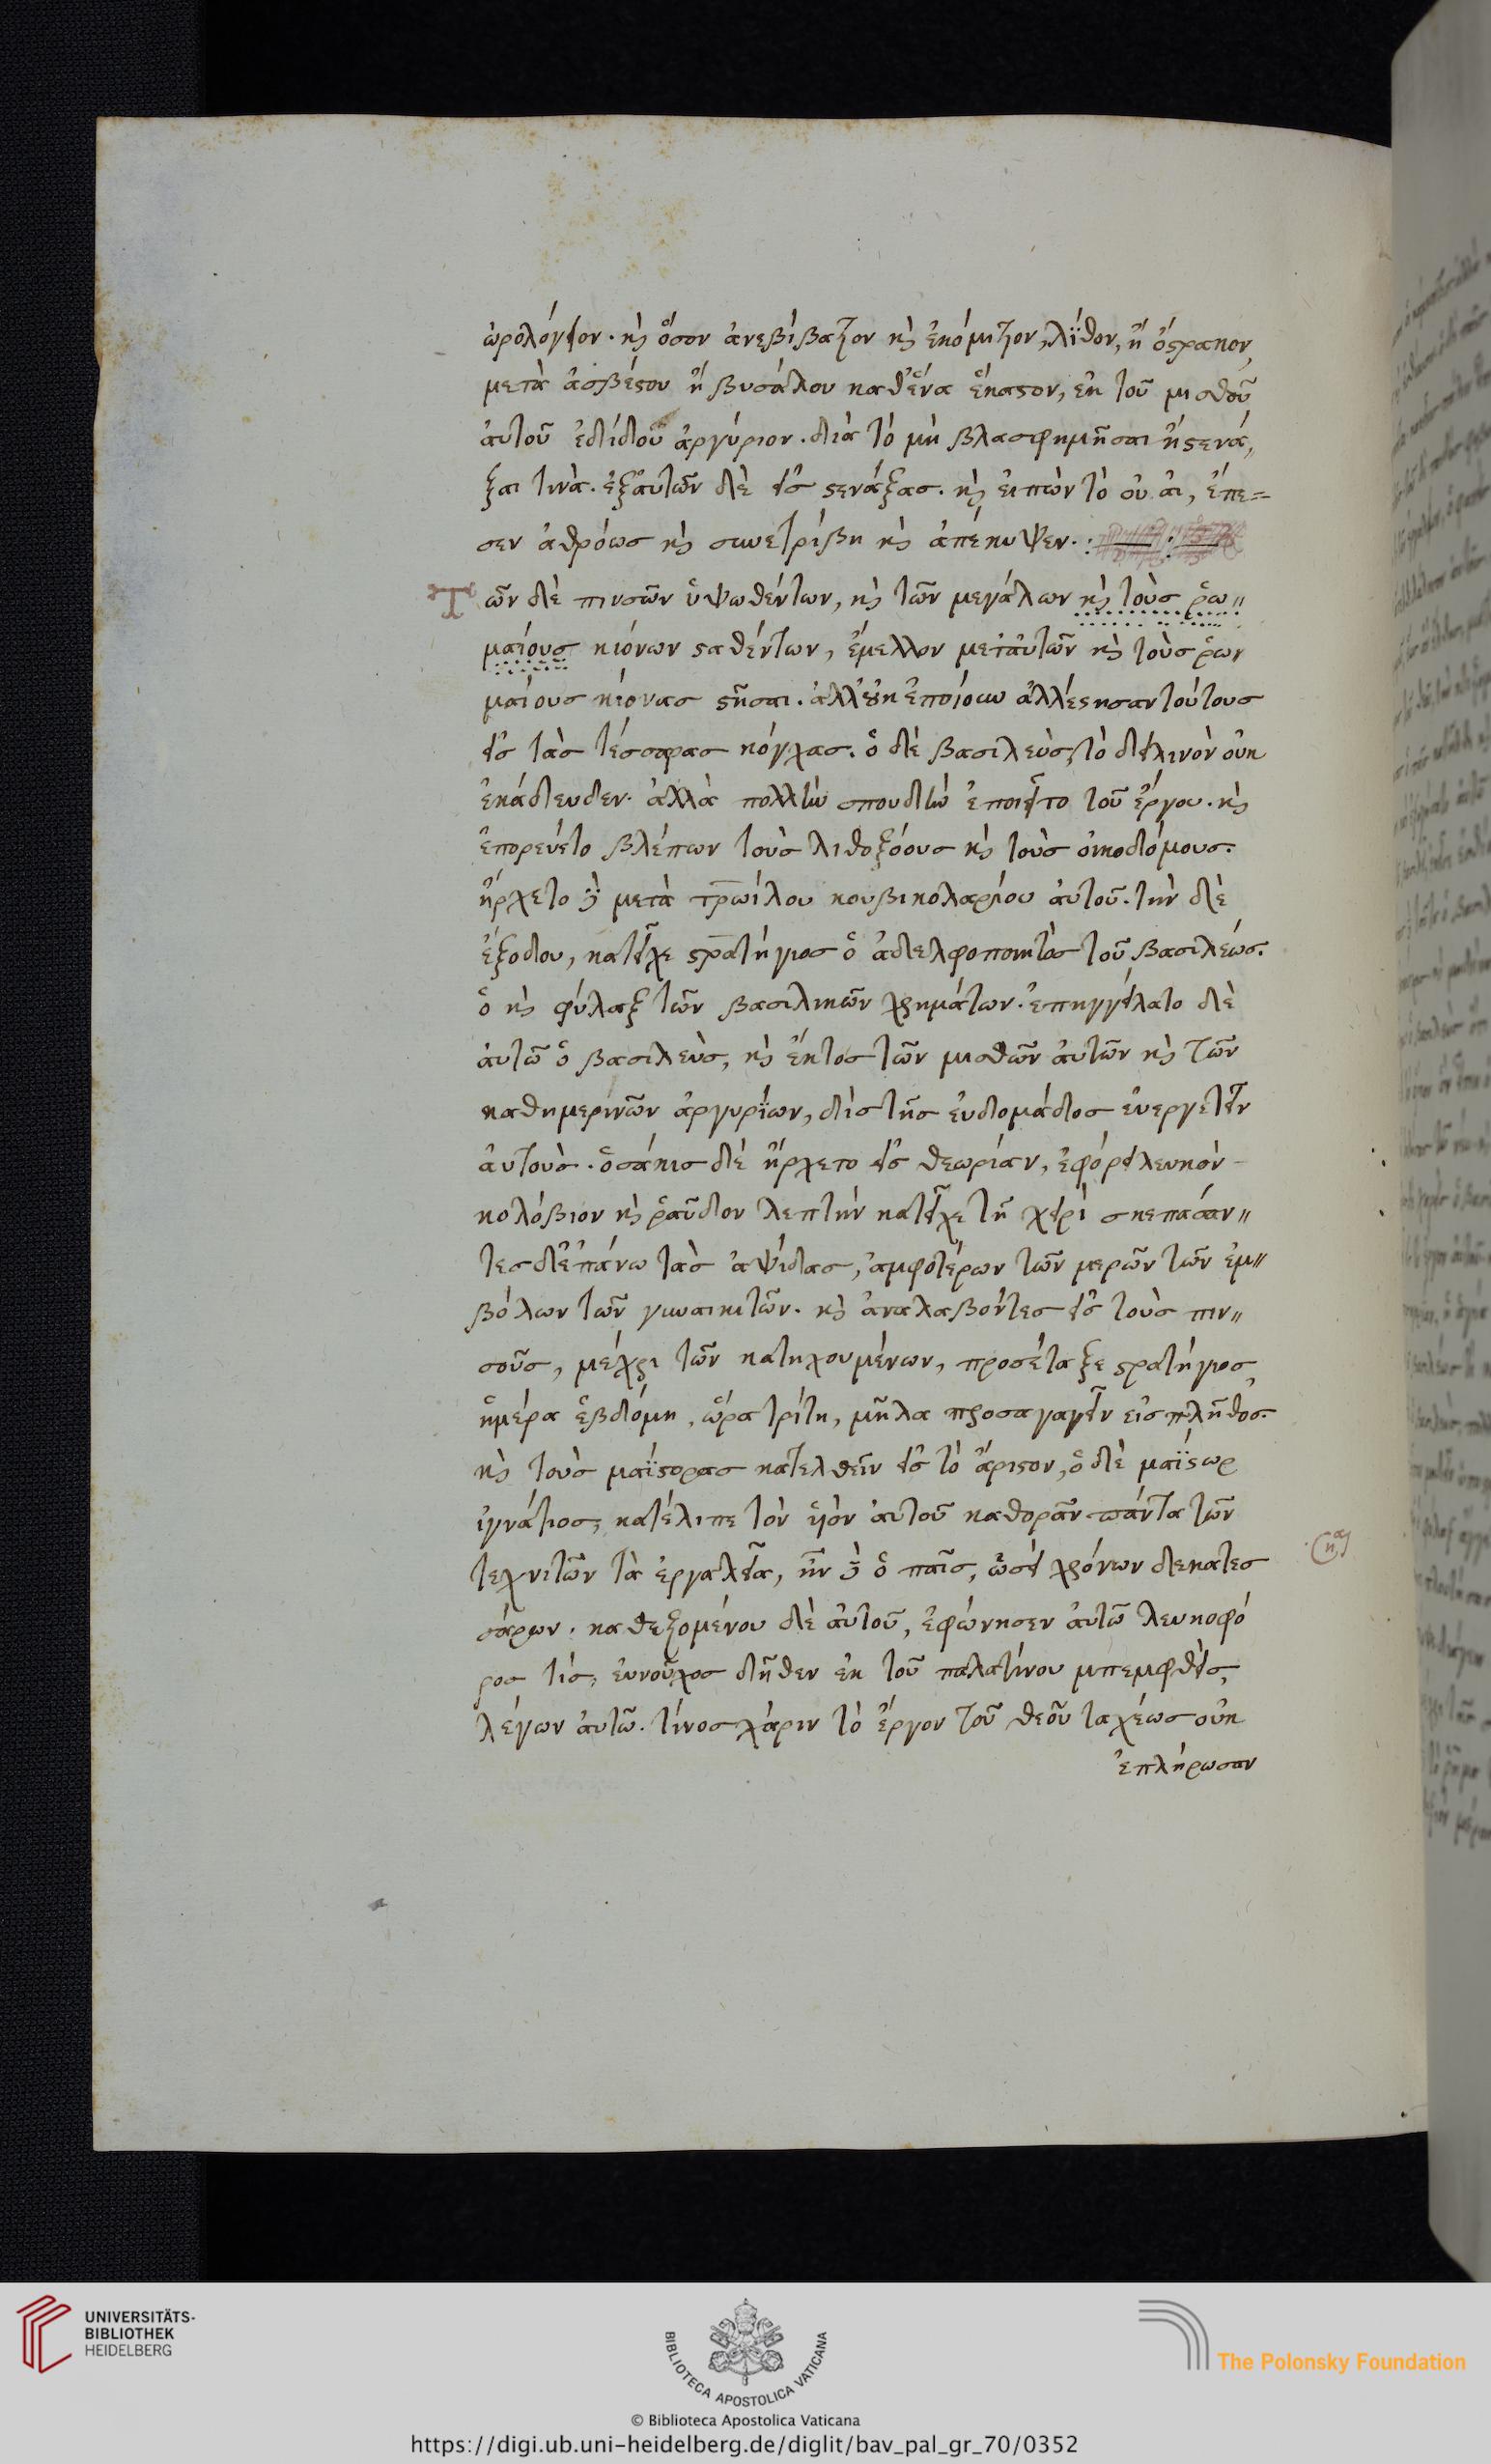 ὡρολόγειον. κὶ ὅσον ἀνεβίβαζον κὶ ἐκόμιζον, λΐθον, ἢ ὄστρακον,
μετὰ ἀσβέστου ἢ βυσάλου καθἕνα ἕκαστον, ἐκ τοῦ μισθοῦ
ἀυτοῦ ἐδίδου ἀργύριον. διὰ τὸ μὴ βλασφημῆσαι ἢ στενά,
ξαι τινὰ. ἐξἀυτῶν δὲ εἷσ στενάξασ. κὶ ἐιπὼν τὸ οὐαι, ἔπε=
σεν ἀθρόωσ κὶ συνετρίβη κὶ ἀπέκυψεν.
Τῶν δὲ πινσῶν ὑψωθέντων, κὶ τῶν μεγάλων κὶ τοὺσ ῥω
μαίουσ κιόνων σταθέντων, ἔμελλον μετἀυτῶν κὶ τοὺσ ῥων
μαίουσ κίονασ στῆσαι. ἀλλ' οὐκ ἐποίουν ἀλλέστησαν τούτουσ
εἰσ τὰσ τέσσαρασ κόγχασ. ὁ δὲ βασιλεὺσ, τὸ δειλινὸν οὐκ
ἐκάθευδεν. ἀλλὰ πολλὴν σπουδὴν ἐποιεῖτο τοῦ ἔργου. κὶ
ἐπορεύετο βλέπων τοὺσ λιθοξόουσ κὶ τοὺσ οἰκοδόμουσ.
ἤρχετο γὰρ μετὰ τρωίλου κουβικολαρίου ἀυτοῦ. τὴν δὲ
ἔξοδον, κατεῖχε στρατήγιοσ ὁ ἀδελφοποιητὸσ τοῦ βασιλεώσ.
ὁ κὶ φύλαξ τῶν βασιλικῶν χρημάτων. ἐπηγγείλατο δὲ
ἀυτῶ ὁ βασιλεὺσ, κὶ ἔκτοσ τῶν μισθῶν ἀυτῶν κὶ τῶν
καθημερινῶν ἀργυρΐων, δὶσ τῆσ ἐυδομάδοσ ἐυεργετεῖν
ἀυτοὺσ. ὁσάκισ δὲ ἤρχετο εἰσ θεωρίαν, ἐφόρει λευκὸν
κολόβιον κὶ ῥαῦδον λεπτὴν κατεῖχε τῆ χειρὶ σκεπάσαν
τεσ δὲ ἐπάνω τὰσ ἀψίδασ, ἀμφοτέρων τῶν μερῶν τῶν ἐμ
βόλων τῶν γυναικιτῶν. κὶ ἀναλαβόντεσ εἰσ τοὺσ πιν
σοῦσ, μέχρι τῶν κατηχουμένων, προσέταξε στρατήγιοσ,
ἡμέρα ἑβδόμη, ὥρα τρίτη, μῆλα προσαγαγεῖν εἰσ πλῆθοσ.
κὶ τοὺσ μαΐστορασ κατελθεῖν εἰσ τὸ ἄριστον, ὁ δὲ μαΐστωρ
ἰγνάτιοσ, κατέλιπε τὸν ὑιὸν ἀυτοῦ καθορᾶν πάντα τῶν
τεχνιτῶν τὰ ἐργαλεῖα, ἦν γὰρ ὁ παῖσ, ὡσεὶ χρόνων δεκατεσ
σάρων. καθεζομένου δὲ ἀυτοῦ, ἐφώνησεν ἀυτῶ λευκοφό
ροσ τὶσ, ἐυνοῦχοσ δῆθεν ἐκ τοῦ παλατίνου μπεμφθεὶσ,
λέγων ἀυτῶ. τίνοσ χάριν τὸ ἔργον τοῦ θεοῦ ταχέωσ οὐκ
ἐπλήρωσαν
UNIVERSITÄTS-
BIBLIOTHEK
HEIDELBERG
BIBLIOTECA APOSTOLICA VATICANA
The Polonsky Foundation
© Biblioteca Apostolica Vaticana
https://digi.ub.uni-heidelberg.de/diglit/bav_pal_gr_70/0352